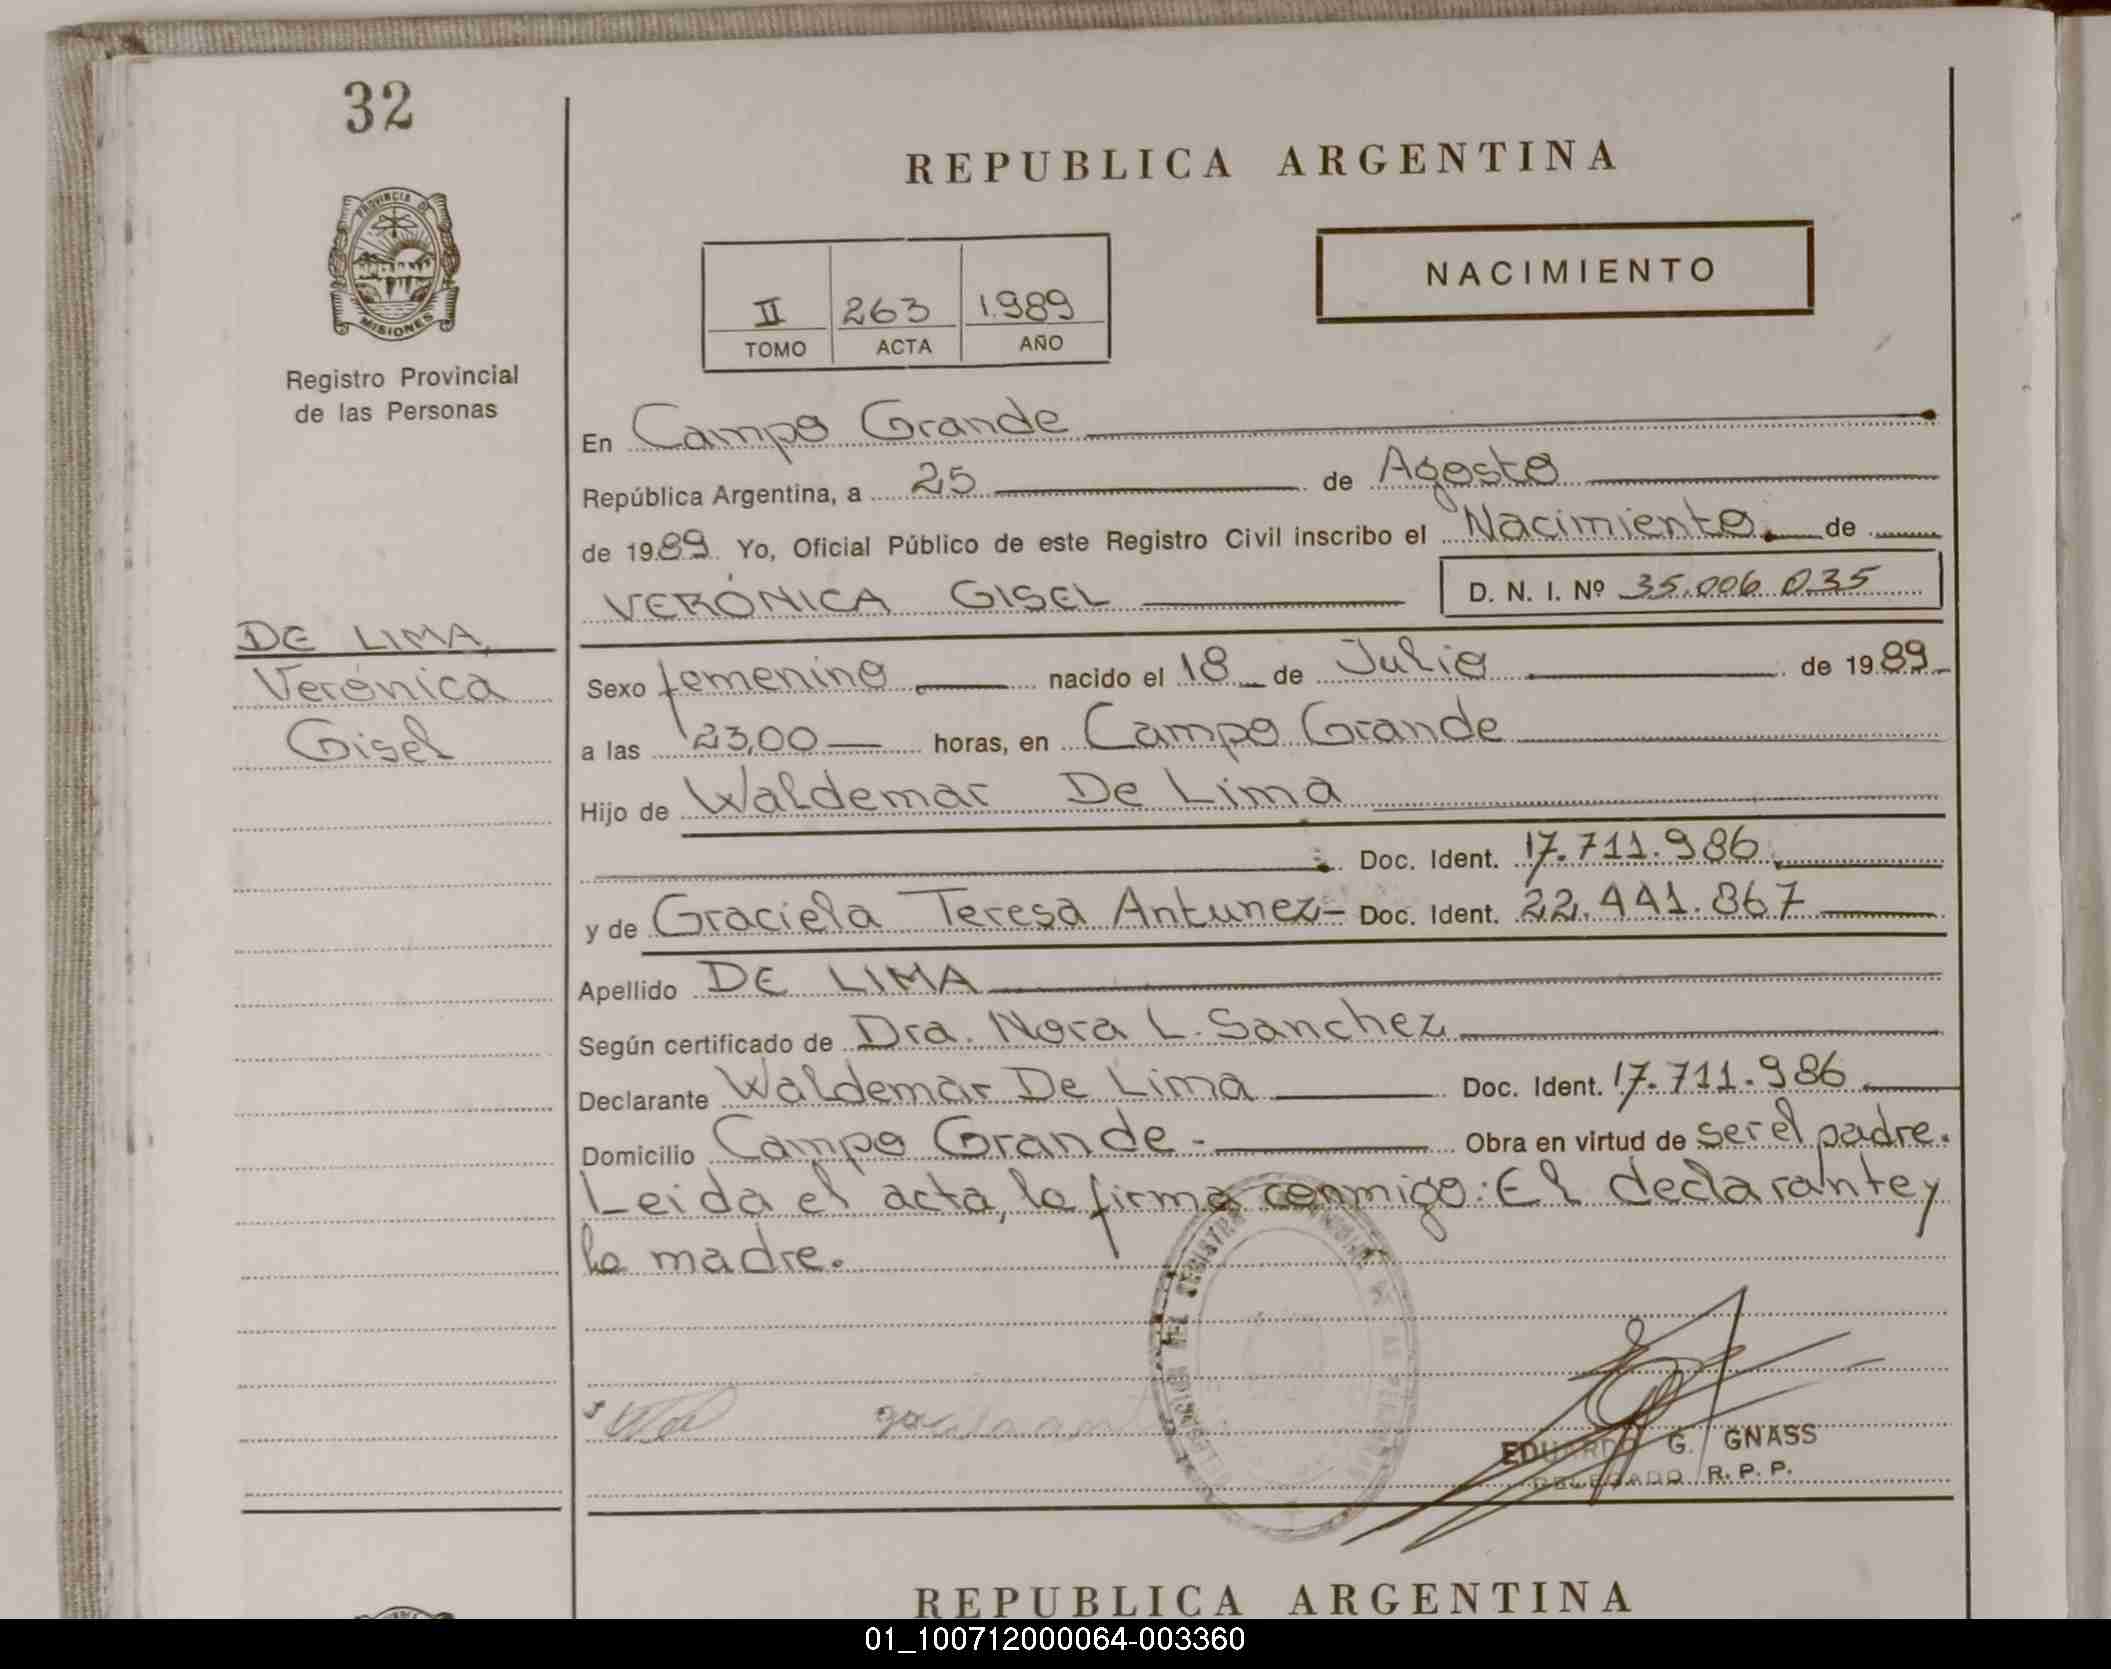 32
REPUBLICA ARGENTINA
PROVINCIA DE
MISIONES
Registro Provincial
de las Personas
NACIMIENTO
II 263 1.989
TOMO ACTA AÑO
En Campo Grande
República Argentina, a 25 de Agosto
de 1989 Yo, Oficial Público de este Registro Civil inscribo el Nacimiento. de
VERÓNICA GISEL D. N. I. Nº 35.006.035
DE LIMA,
Verónica
Gisel
Sexo femenino nacido el 18 de Julio de 1989
a las 23,00 horas, en Campo Grande
Hijo de Waldemar De Lima
Doc. Ident. 17.711.986
y de Graciela Teresa Antunez- Doc. Ident. 22.441.867
Apellido DE LIMA
Según certificado de Dra. Nora L. Sanchez
Declarante Waldemar De Lima Doc. Ident. 17.711.986
Domicilio Campo Grande - Obra en virtud de ser el padre.
Leida el acta, la firma conmigo: El declarante y
la madre.
EDUARDO G. GNASS
DELEGADO R. P. P.
REPUBLICA ARGENTINA
01_100712000064-003360